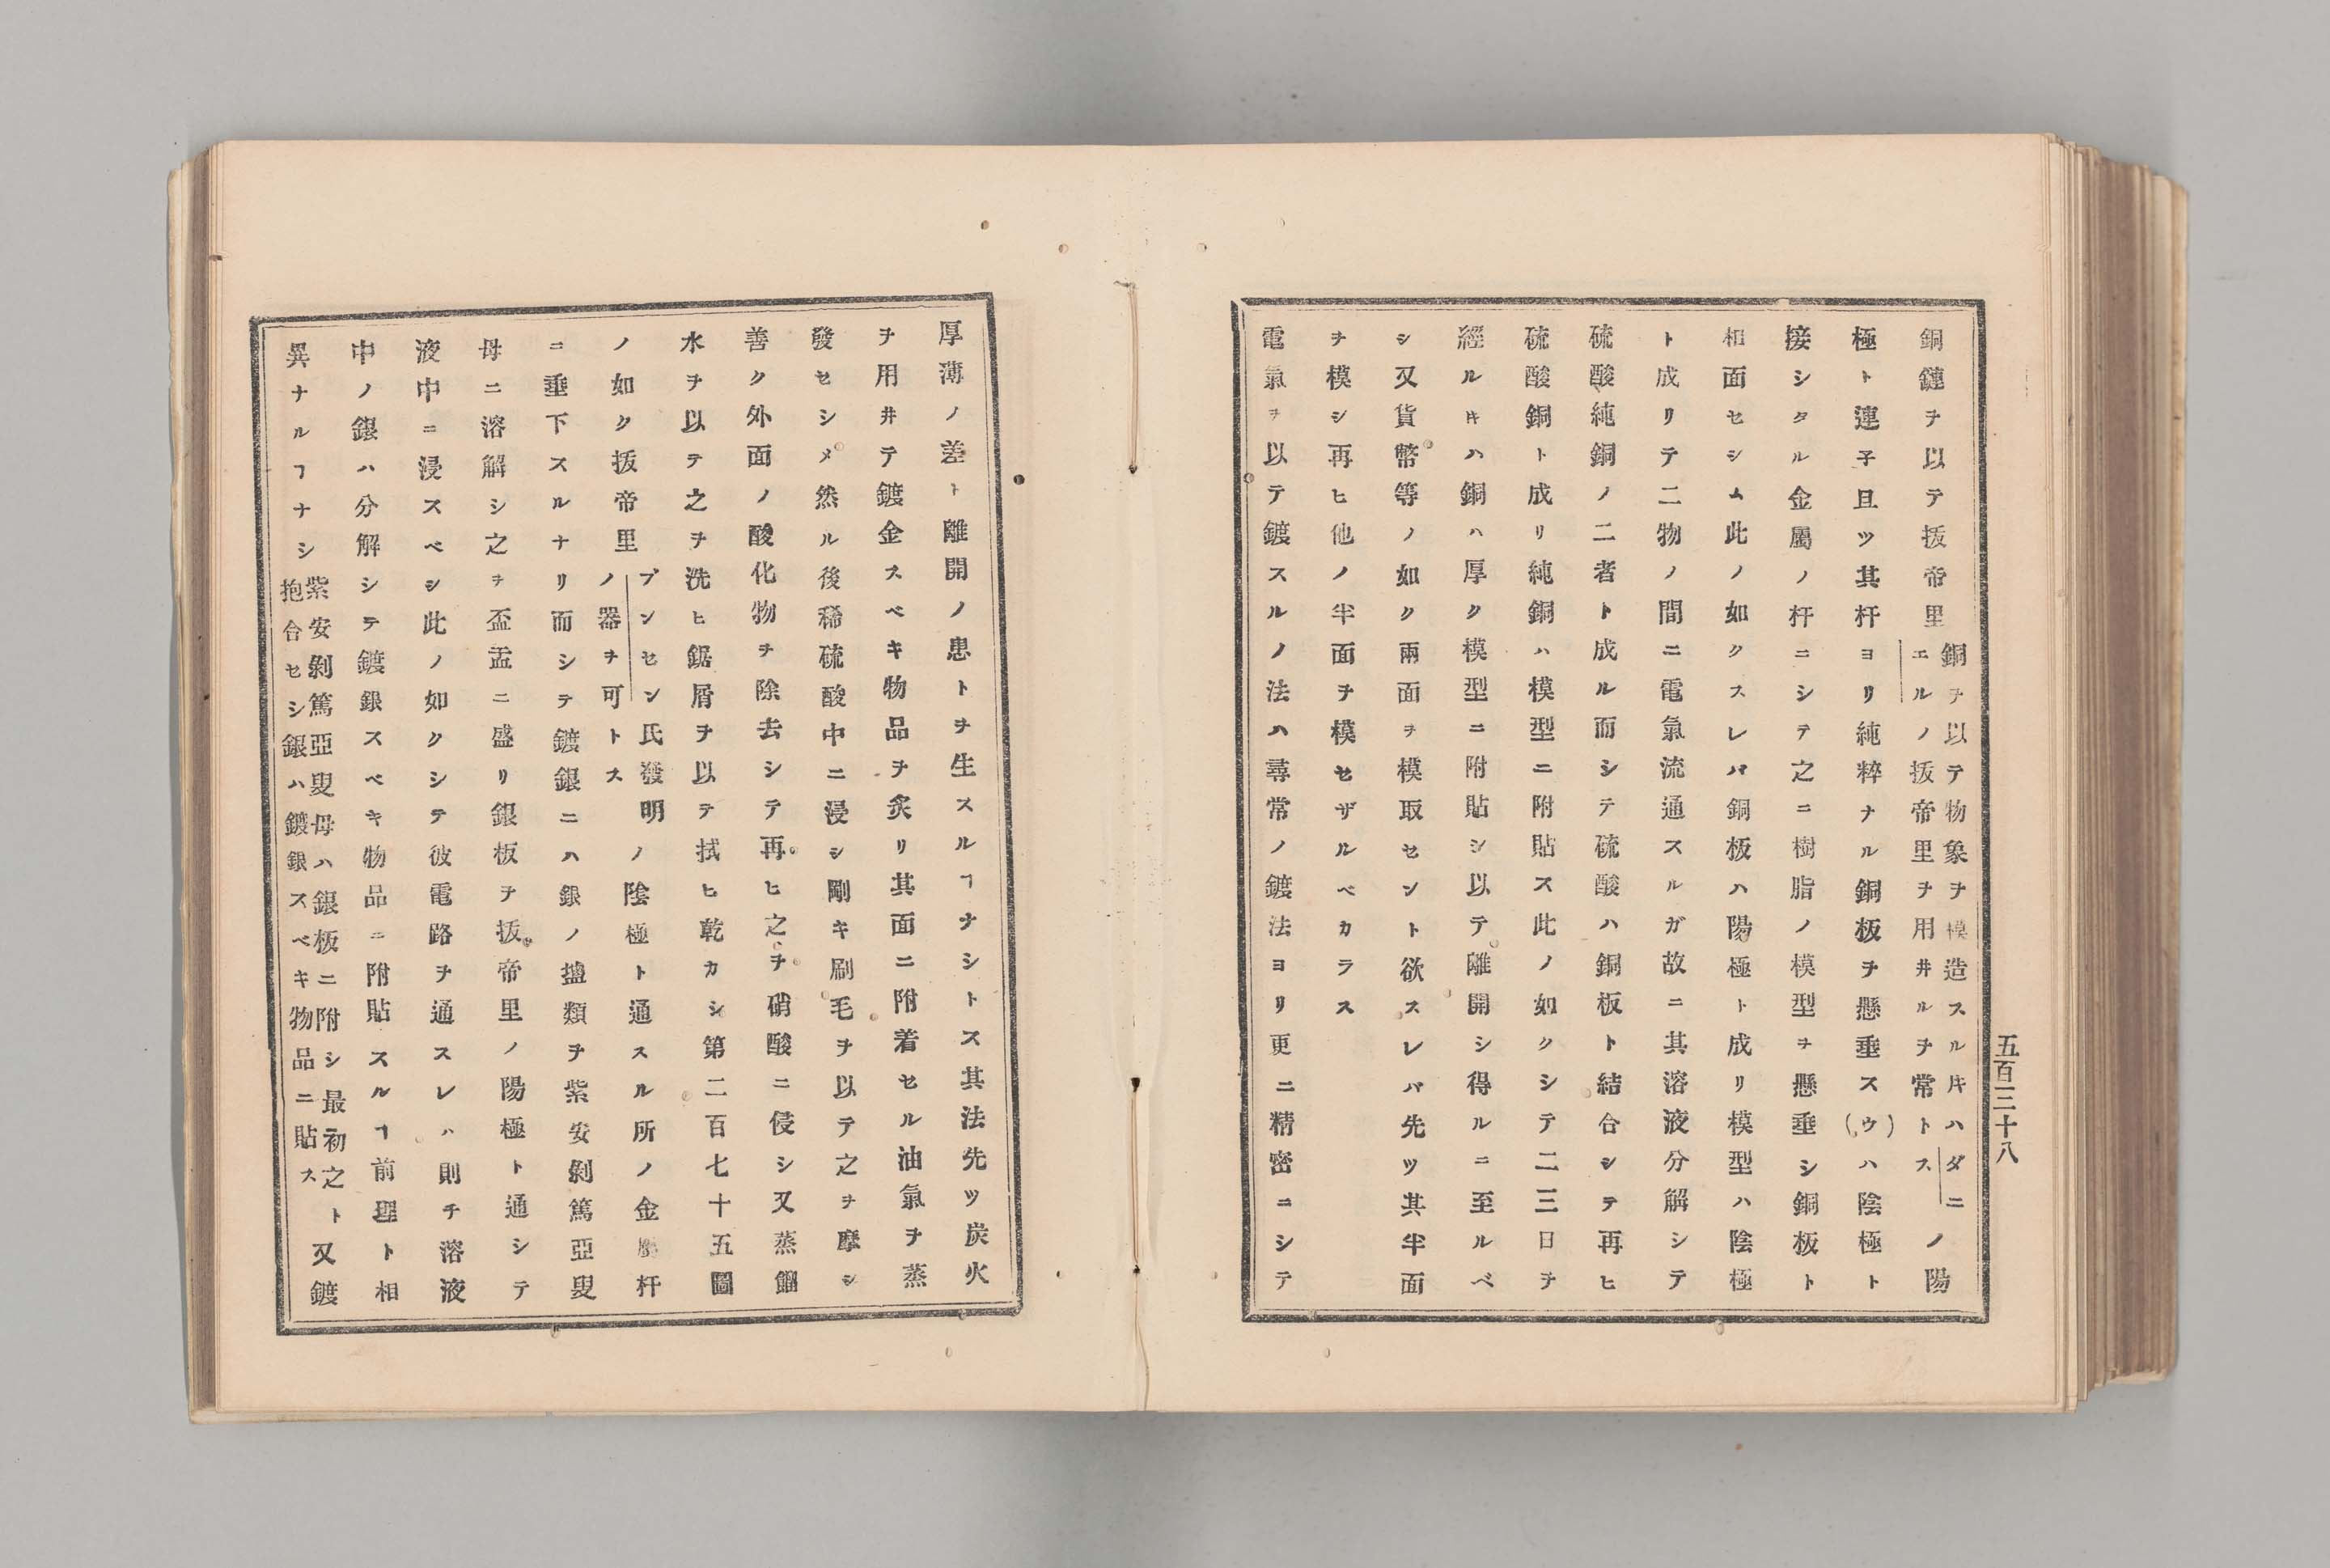 銅鏈ヲ以テ抜帝里銅ヲ以テ物象ヲ模造スルキハダニエルノ抜帝里ヲ用井ルヲ常トスノ陽
極ト連子且ツ其杆ヨリ純粹ナル銅板ヲ懸垂ス(ウ)ハ陰極ト
接シタル金屬ノ杆ニシテ之ニ樹脂ノ模型ヲ懸垂シ銅板ト
相面セシム此ノ如クスレバ銅板ハ陽極ト成リ模型ハ陰極
ト成リテ二物ノ間ニ電氣流通スルガ故ニ其溶液分解シテ
硫酸純銅ノ二者ト成ル而シテ硫酸ハ銅板ト結合シテ再ヒ
硫酸銅ト成リ純銅ハ模型ニ附貼ス此ノ如クシテ二三日ヲ
經ルキハ銅ハ厚ク模型ニ附貼シ以テ離開シ得ルニ至ルベ
シ又貨幣等ノ如ク兩面ヲ模取セント欲スレバ先ツ其半面
ヲ模シ再ヒ他ノ半面ヲ模セザルベカラス
電氣ヲ以テ鍍スルノ法ハ尋常ノ鍍法ヨリ更ニ精密ニシテ
五百三十八
厚薄ノ差ト離開ノ患トヲ生スルヿナシトス其法先ツ炭火
ヲ用井テ鍍金スベキ物品ヲ炙リ其面ニ附着セル油氣ヲ蒸
發セシメ然ル後稀硫酸中ニ浸シ剛キ刷毛ヲ以テ之ヲ摩シ
善ク外面ノ酸化物ヲ除去シテ再ヒ之ヲ硝酸ニ侵シ又蒸餾
水ヲ以テ之ヲ洗ヒ鋸屑ヲ以テ拭ヒ乾カシ第二百七十五圖
ノ如ク抜帝里ブンセン氏發明ノ器ヲ可トスノ陰極ト通スル所ノ金屬杆
ニ垂下スルナリ而シテ鍍銀ニハ銀ノ鹽類ヲ紫安剝篤亞叟
母ニ溶解シ之ヲ盃盂ニ盛リ銀板ヲ抜帝里ノ陽極ト通シテ
液中ニ浸スベシ此ノ如クシテ彼電路ヲ通スレハ則チ溶液
中ノ銀ハ分解シテ鍍銀スベキ物品ニ附貼スルヿ前理ト相
異ナルヿナシ紫安剝篤亞叟母ハ銀板ニ附シ最初之ト抱合セシ銀ハ鍍銀スベキ物品ニ貼ス又鍍